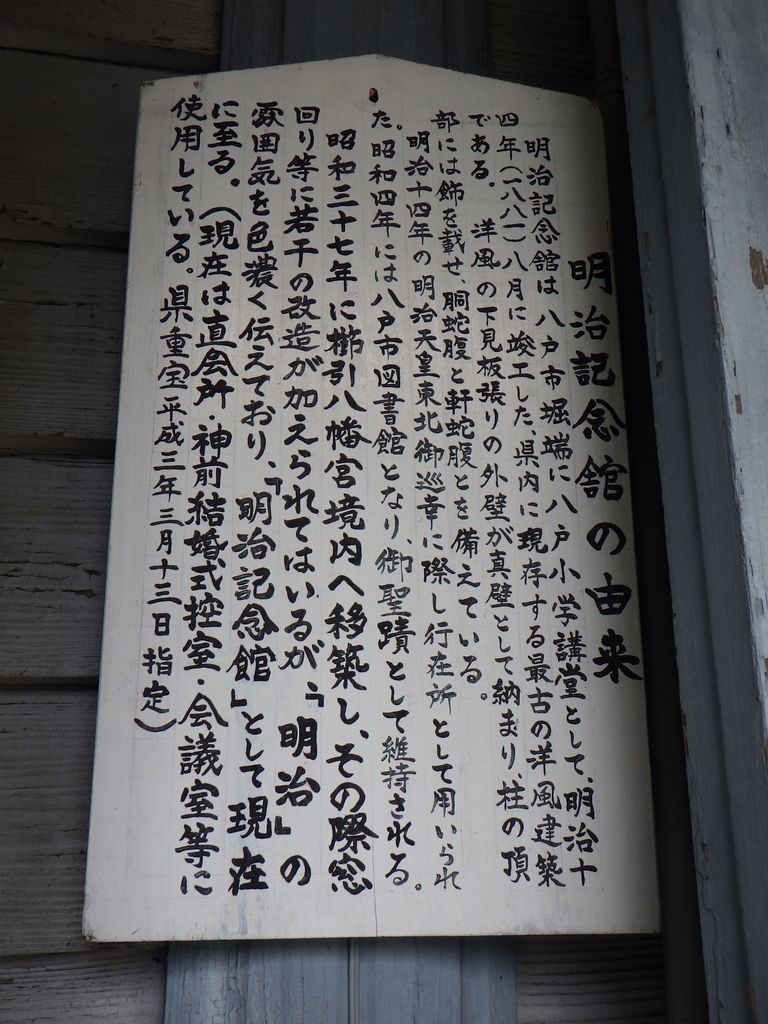 明治記念舘の由来
明治記念舘は八戸市堀端に八戸小学講堂として、明治十
四年(一八八一)八月に竣工した、県内に現存する最古の洋風建築
である。洋風の下見板張りの外壁が真壁として納まり、柱の頂
部には飾を載せ、胴蛇腹と軒蛇腹とを備えている。
明治十四年の明治天皇東北御巡幸に際し行在所として用いられ
た。昭和四年には八戸市図書館となり、御聖蹟として維持される。
昭和三十七年に櫛引八幡宮境内へ移築し、その際窓
回り等に若干の改造が加えられてはいるが、「明治」の
雰囲気を色濃く伝えており、「明治記念館」として現在
に至る。(現在は直会所・神前結婚式控室・会議室等に
使用している。県重宝平成三年三月十三日指定)